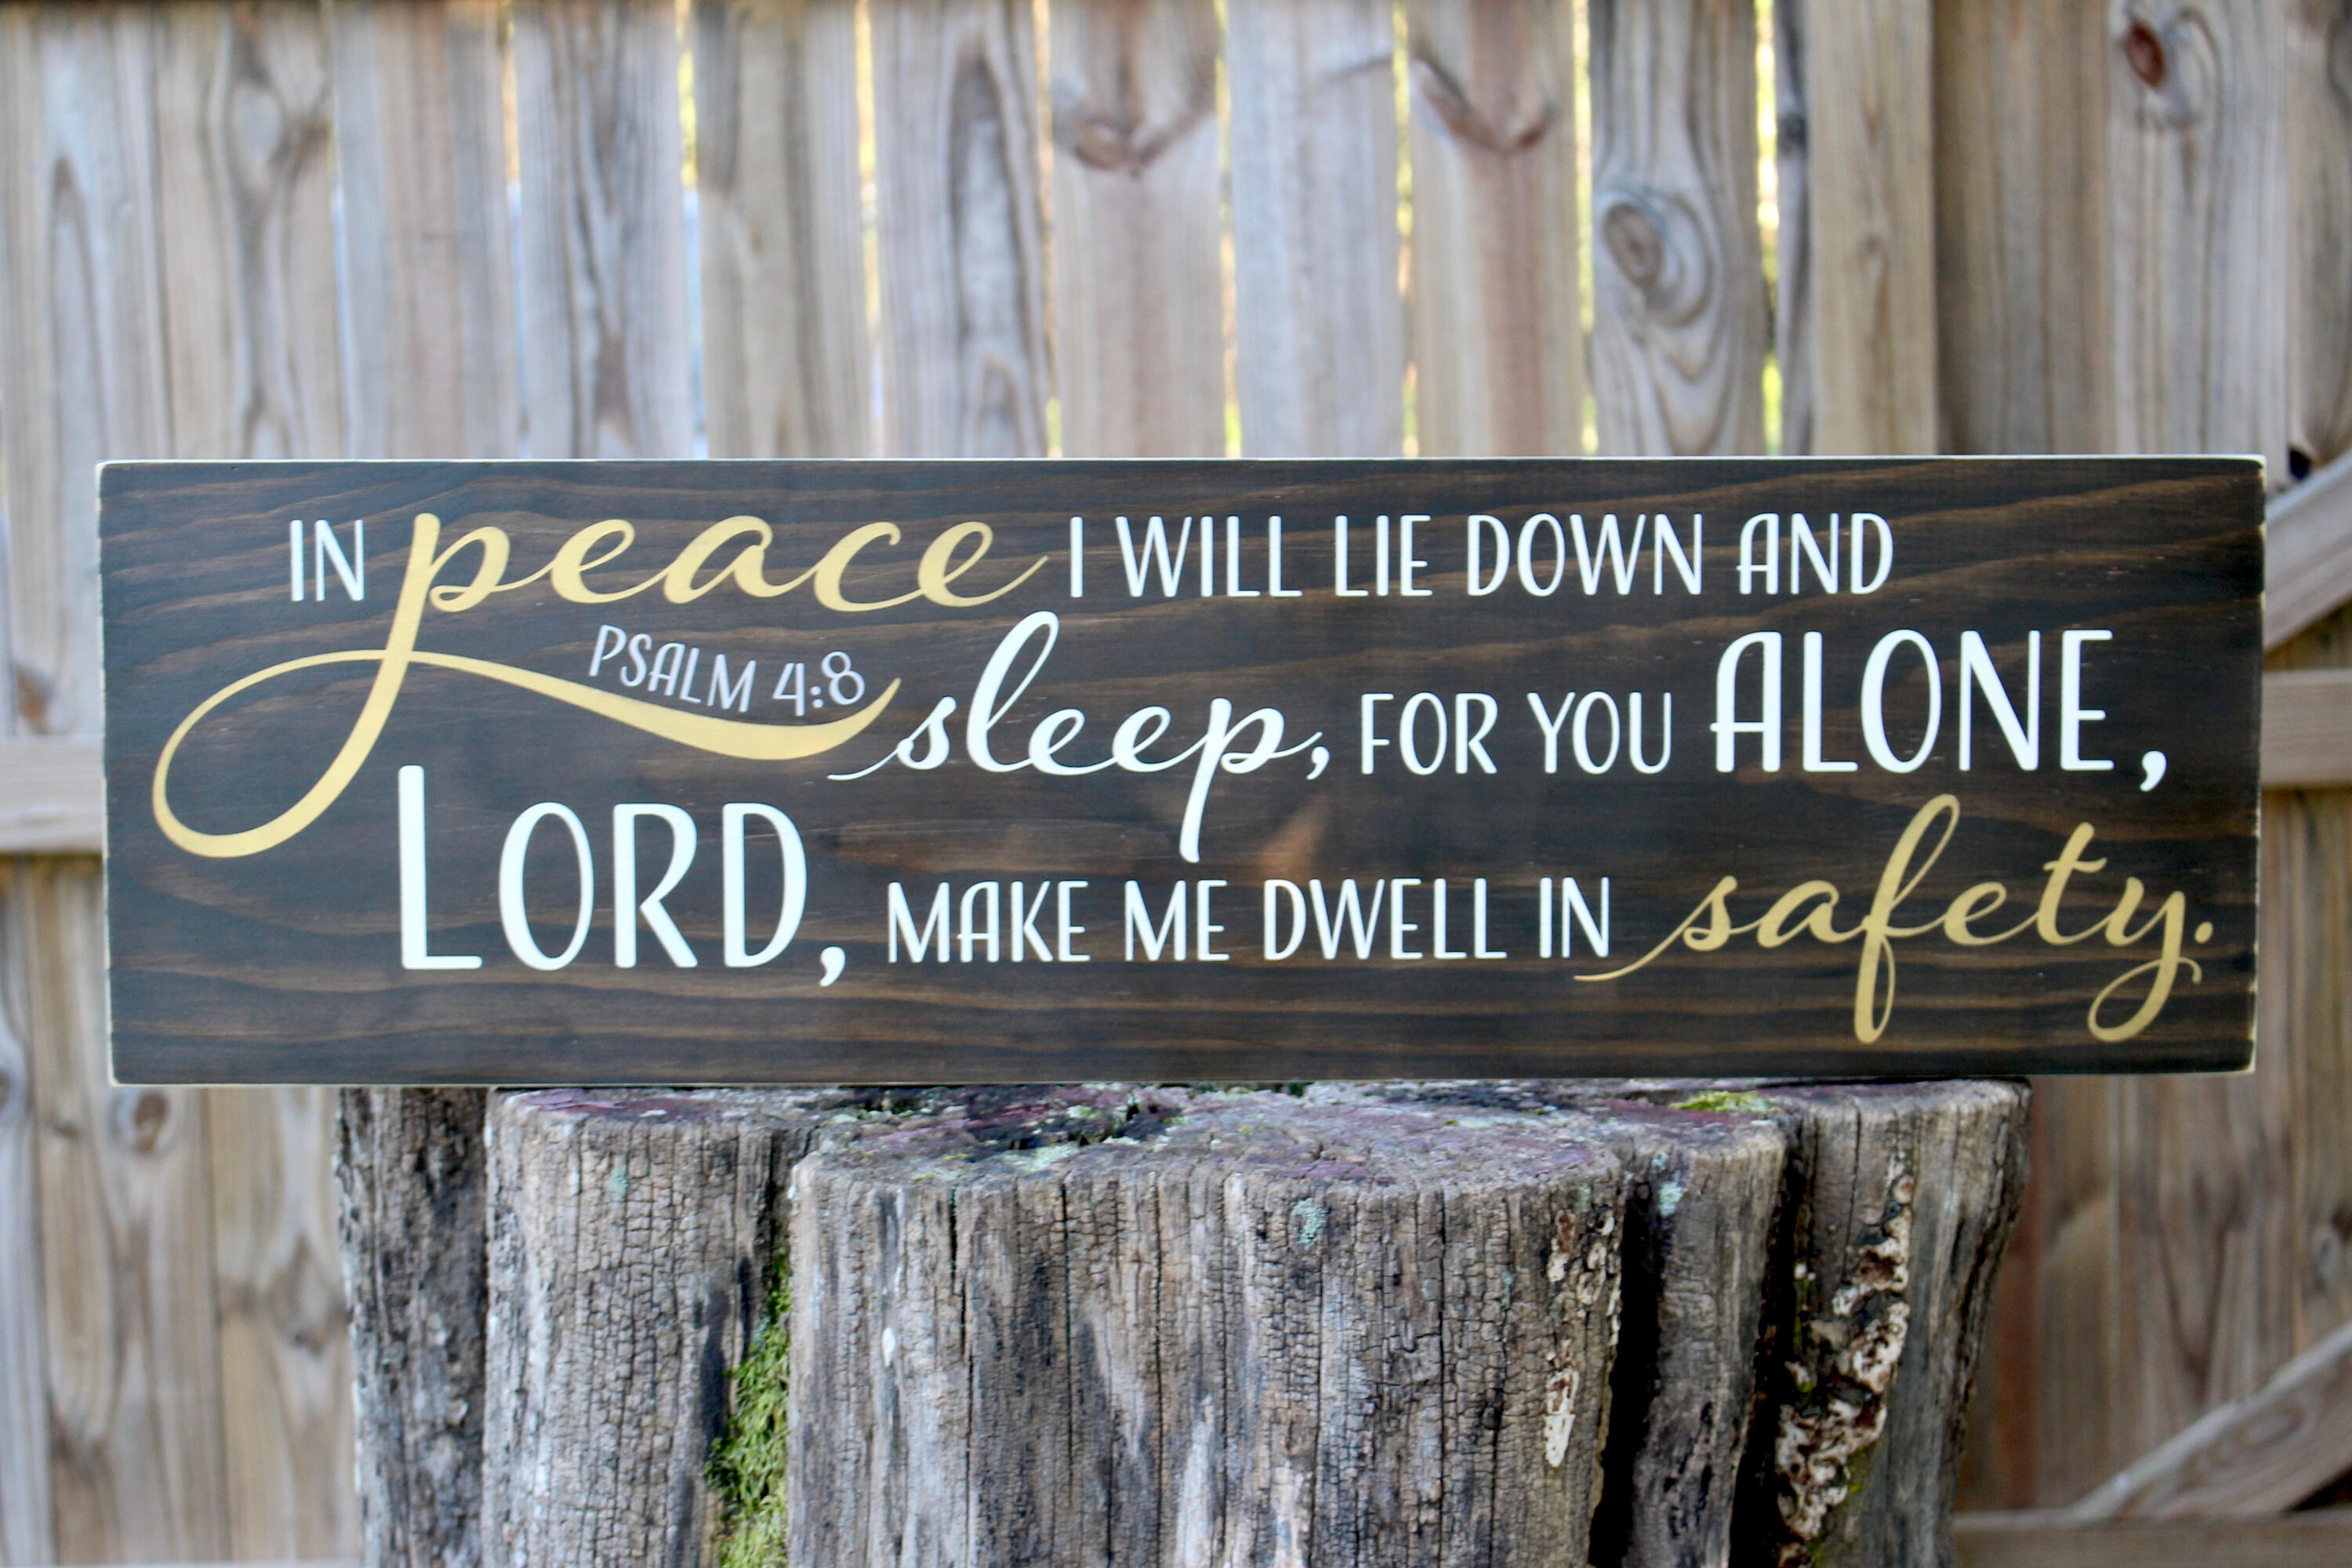 IN peace I WILL LIE DOWN AND
PSALM 4:8
sleep, FOR YOU ALONE,
LORD, MAKE ME DWELL IN safety.